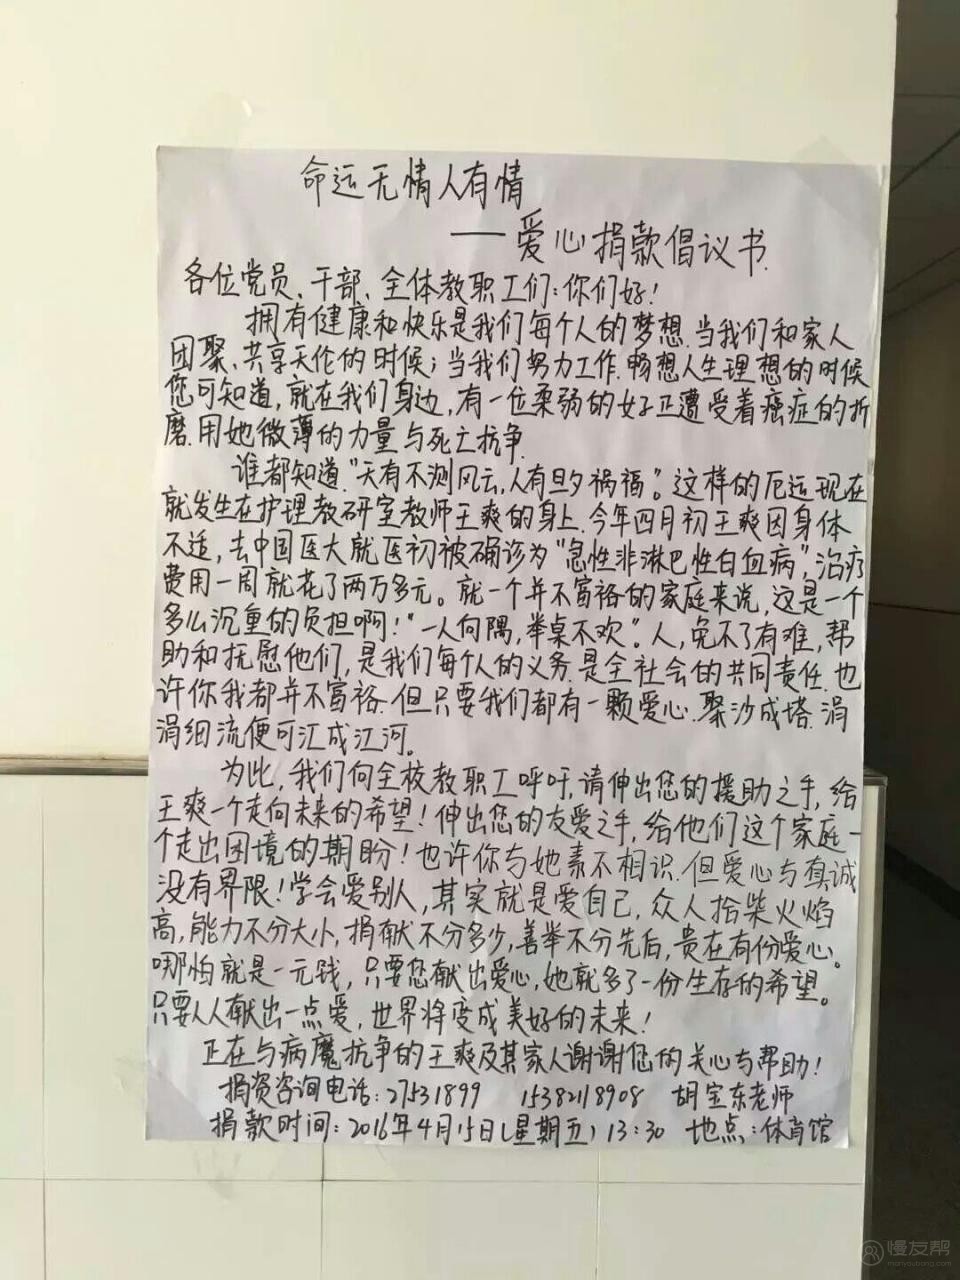 命运无情人有情
——爱心捐款倡议书.
各位党员、干部、全体教职工们:你们好!
拥有健康和快乐是我们每个人的梦想.当我们和家人
团聚、共享天伦的时候;当我们努力工作.畅想人生理想的时候
您可知道,就在我们身边,有一位柔弱的女子正遭受着癌症的折
磨.用她微薄的力量与死亡抗争.
谁都知道."天有不测风云,人有旦夕祸福"。这样的厄运现在
就发生在护理教研室教师王爽的身上.今年四月初王爽因身体
不适,去中国医大就医初被确诊为"急性非淋巴性白血病",治疗
费用一周就花了两万多元。就一个并不富裕的家庭来说,这是一个
多么沉重的负担啊!"一人向隅,举桌不欢"。人,免不了有难,帮
助和抚慰他们,是我们每个人的义务.是全社会的共同责任.也
许你我都并不富裕.但只要我们都有一颗爱心.聚沙成塔.涓
涓细流便可汇成江河。
为此,我们向全校教职工呼吁,请伸出您的援助之手,给
王爽一个走向未来的希望!伸出您的友爱之手,给他们这个家庭一
个走出困境的期盼!也许你与她素不相识.但爱心与真诚
没有界限!学会爱别人,其实就是爱自己,众人拾柴火焰
高,能力不分大小,捐献不分多少,善举不分先后,贵在有份爱心。
哪怕就是一元钱,只要您献出爱心,她就多了一份生存的希望。
只要人人献出一点爱,世界将变成美好的未来!
正在与病魔抗争的王爽及其家人谢谢您的关心与帮助!
捐资咨询电话:27531899 15382118908 胡宝东老师
捐款时间:2016年4月15日(星期五)13:30 地点:体育馆
慢友帮